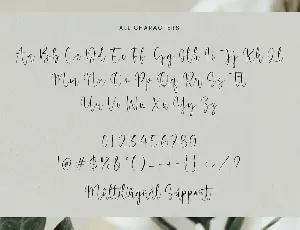 ALL CHARACTERS
Aa Bb Cc Dd Ee Ff Gg Hh Ii Jj Kk Ll
Mm Nn Oo Pp Qq Rr Ss Tt
Uu Vv Ww Xx Yy Zz
0123456789
Multilingual Support